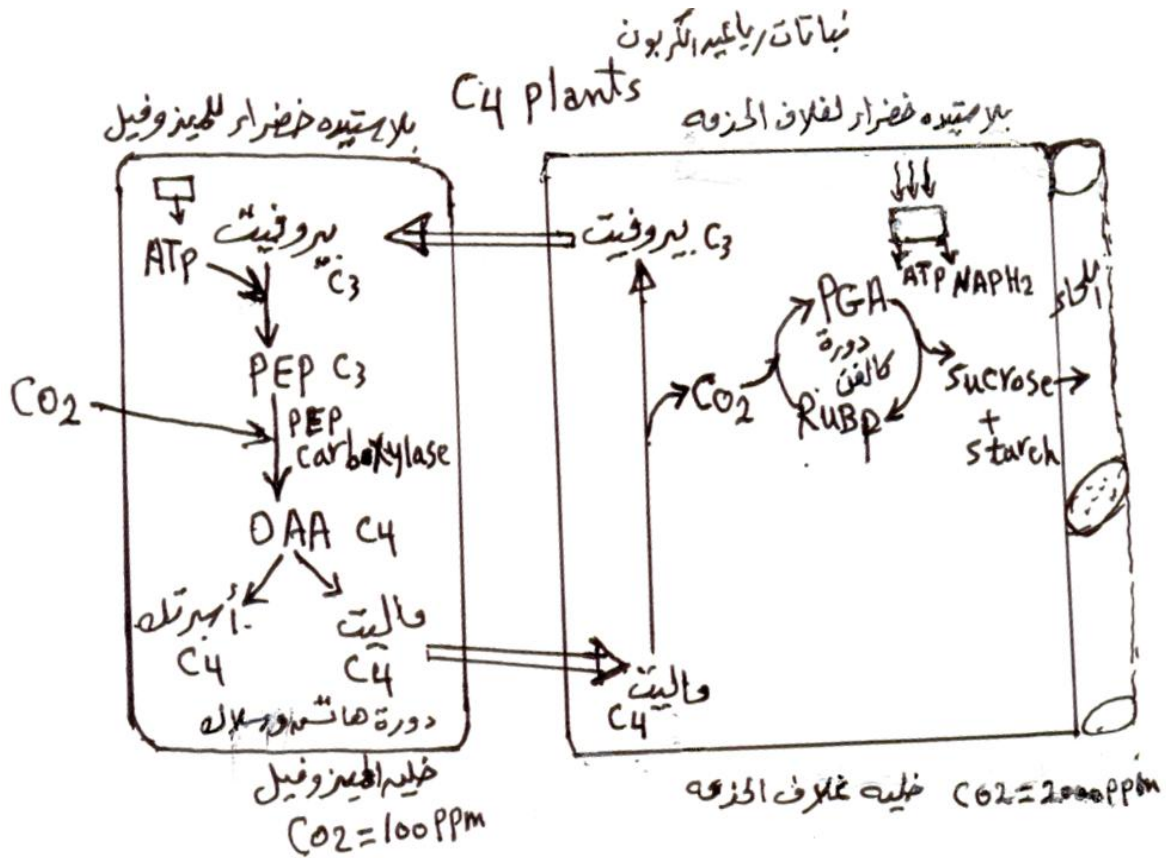 نباتات رباعيه الكربون
C4 plants
بلاستيده خضراء للميزوفيل
ATP
بيروفيت
C3
PEP C3
CO2
PEP
carboxylase
OAA C4
أسبرتك
C4
ماليت
C4
دورة هاتش وسلاك
خليه الميزوفيل
CO2=100PPm
بلاستيده خضراء لغلاف الحزمه
بيروفيت C3
ATP NAPH2
PGA
دورة
كالفن
RuBP
CO2
sucrose
+
starch
اللحاء
ماليت
C4
خليه غلاف الحزمه CO2=2000PPm